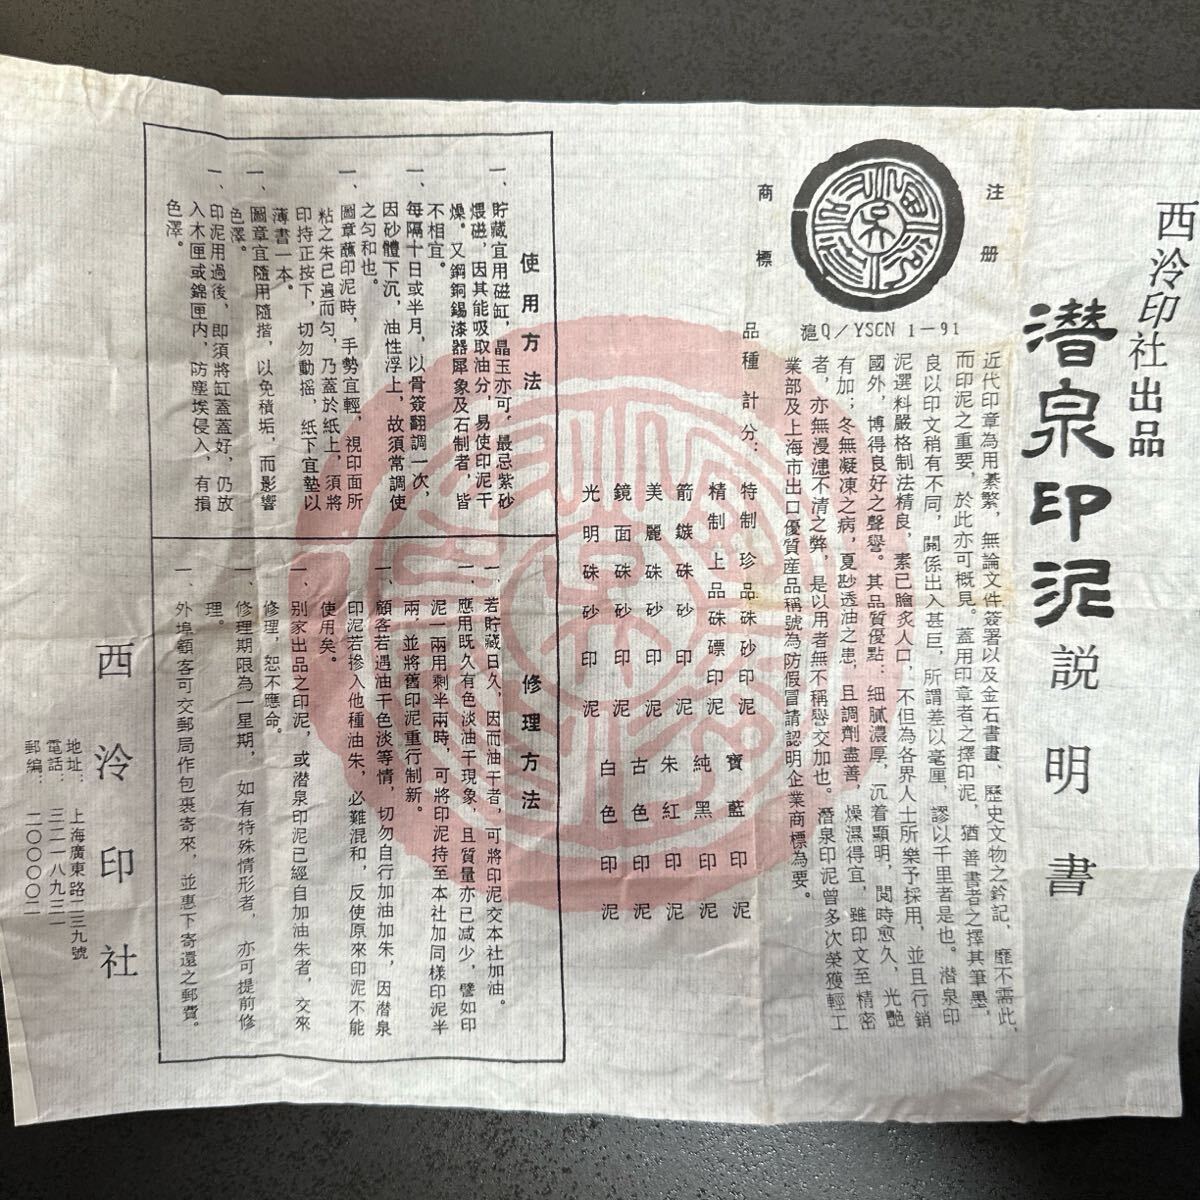 西泠印社出品
潛泉印泥説明書
注册
商標
滬Q／YSCN 1－91
近代印章為用綦繁，無論文件簽署以及金石書畫、歷史文物之鈐記，靡不需此，
而印泥之重要，於此亦可概見。蓋用印章者之擇印泥，猶善書者之擇其筆墨，
良以印文稍有不同，關係出入甚巨，所謂差以毫厘，謬以千里者是也。潜泉印
泥選料嚴格制法精良，素已膾炙人口，不但為各界人士所樂予採用，並且行銷
國外，博得良好之聲譽。其品質優點：細膩濃厚，沉着顯明，閲時愈久，光艷
有加；冬無凝凍之病，夏尠透油之患，且調劑盡善，燥濕得宜，雖印文至精密
者，亦無漫漶不清之弊，是以用者無不稱譽交加也。潛泉印泥曾多次榮獲輕工
業部及上海市出口優質産品稱號為防假冒請認明企業商標為要。
品種計分：
特制珍品硃砂印泥
精制上品硃磦印泥
箭鏃硃砂印泥
美麗硃砂印泥
鏡面硃砂印泥
光明硃砂印泥
寶藍印泥
純黑印泥
朱紅印泥
古色印泥
白色印泥
使用方法
一、貯藏宜用磁缸，晶玉亦可，最忌紫砂
煨磁，因其能吸取油分，易使印泥干
燥。又鋼銅錫漆器犀象及石制者，皆
不相宜。
一、每隔十日或半月，以骨簽翻調一次，
因砂體下沉，油性浮上，故須常調使
之匀和也。
一、圖章蘸印泥時，手勢宜輕，視印面所
粘之朱已遍而匀，乃蓋於紙上，須將
印持正按下，切勿動摇，紙下宜墊以
薄書一本。
一、圖章宜隨用隨揩，以免積垢，而影響
色澤。
一、印泥用過後，即須將缸蓋蓋好，仍放
入木匣或錦匣内，防塵埃侵入，有損
色澤。
修理方法
一、若貯藏日久，因而油干者，可將印泥交本社加油。
一、應用既久有色淡油干現象，且質量亦已减少，譬如印
泥一兩用剩半兩時，可將印泥持至本社加同樣印泥半
兩，並將舊印泥重行制新。
一、顧客若遇油干色淡等情，切勿自行加油加朱，因潜泉
印泥若摻入他種油朱，必難混和，反使原來印泥不能
使用矣。
一、别家出品之印泥，或潜泉印泥已經自加油朱者，交來
修理，恕不應命。
一、修理期限為一星期，如有特殊情形者，亦可提前修
理。
一、外埠顧客可交郵局作包裹寄來，並惠下寄還之郵費。
西泠印社
地址：上海廣東路二三九號
電話：三二一八九三一
郵編：二〇〇〇〇二